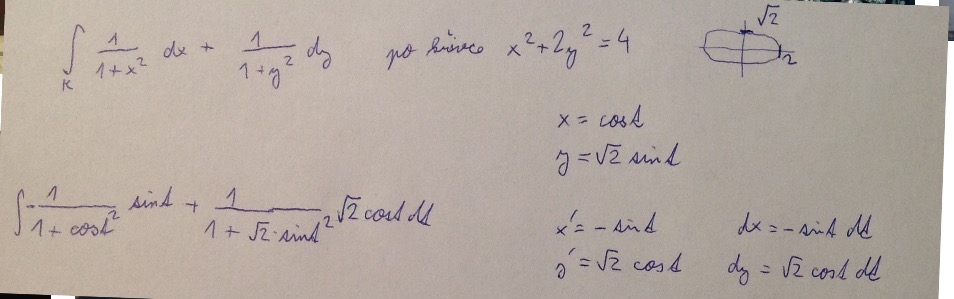 ∫_K 1/(1+x²) dx + 1/(1+y²) dy po křivce x²+2y²=4
√2
2
x = cos t
y = √2 sin t
∫ -1/(1+cos t²) sin t + 1/(1+√2·sin t²) √2 cos t dt
x' = -sin t dx = -sin t dt
y' = √2 cos t dy = √2 cos t dt